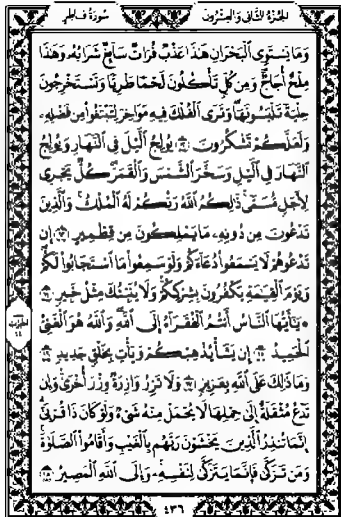 سُورَةُ فَاطِرٍ
الجُزْءُ الثَّانِي وَالعِشْرُونَ
وَمَا يَسْتَوِي الْبَحْرَانِ هَذَا عَذْبٌ فُرَاتٌ سَائِغٌ شَرَابُهُ وَهَذَا
مِلْحٌ أُجَاجٌ وَمِن كُلٍّ تَأْكُلُونَ لَحْمًا طَرِيًّا وَتَسْتَخْرِجُونَ
حِلْيَةً تَلْبَسُونَهَا وَتَرَى الْفُلْكَ فِيهِ مَوَاخِرَ لِتَبْتَغُوا مِن فَضْلِهِ
وَلَعَلَّكُمْ تَشْكُرُونَ ١٢ يُولِجُ اللَّيْلَ فِي النَّهَارِ وَيُولِجُ
النَّهَارَ فِي اللَّيْلِ وَسَخَّرَ الشَّمْسَ وَالْقَمَرَ كُلٌّ يَجْرِي
لِأَجَلٍ مُّسَمًّى ذَلِكُمُ اللَّهُ رَبُّكُمْ لَهُ الْمُلْكُ وَالَّذِينَ
تَدْعُونَ مِن دُونِهِ مَا يَمْلِكُونَ مِن قِطْمِيرٍ ١٣ إِن
تَدْعُوهُمْ لَا يَسْمَعُوا دُعَاءَكُمْ وَلَوْ سَمِعُوا مَا اسْتَجَابُوا لَكُمْ
وَيَوْمَ الْقِيَمَةِ يَكْفُرُونَ بِشِرْكِكُمْ وَلَا يُنَبِّئُكَ مِثْلُ خَبِيرٍ ١٤
۞ يَأَيُّهَا النَّاسُ أَنتُمُ الْفُقَرَاءُ إِلَى اللَّهِ وَاللَّهُ هُوَ الْغَنِيُّ
الْحَمِيدُ ١٥ إِن يَشَأْ يُذْهِبْكُمْ وَيَأْتِ بِخَلْقٍ جَدِيدٍ ١٦
وَمَا ذَلِكَ عَلَى اللَّهِ بِعَزِيزٍ ١٧ وَلَا تَزِرُ وَازِرَةٌ وِزْرَ أُخْرَى وَإِن
تَدْعُ مُثْقَلَةٌ إِلَى حِمْلِهَا لَا يُحْمَلْ مِنْهُ شَيْءٌ وَلَوْ كَانَ ذَا قُرْبَى
إِنَّمَا تُنذِرُ الَّذِينَ يَخْشَوْنَ رَبَّهُم بِالْغَيْبِ وَأَقَامُوا الصَّلَاةَ
وَمَن تَزَكَّى فَإِنَّمَا يَتَزَكَّى لِنَفْسِهِ وَإِلَى اللَّهِ الْمَصِيرُ ١٨
٤٣٦